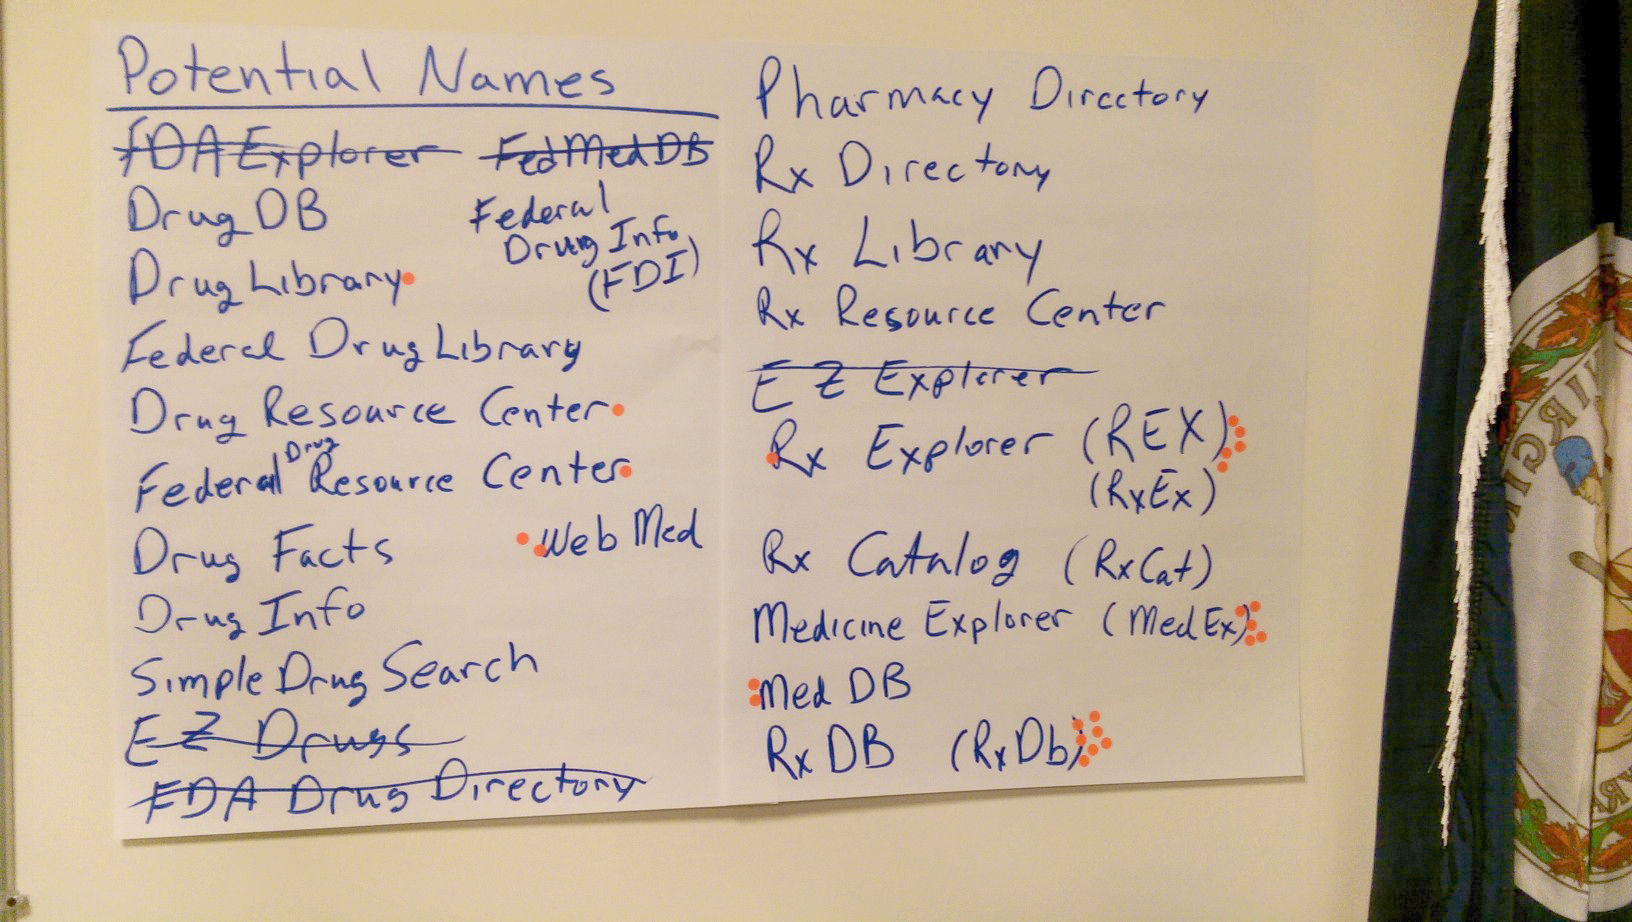 Potential Names
FDA Explorer FedMedDB
Drug DB
Federal
Drug Info
(FDI)
Drug Library
Federal Drug Library
Drug Resource Center
Federal Drug Resource Center
Drug Facts
Web Med
Drug Info
Simple Drug Search
EZ Drugs
FDA Drug Directory
Pharmacy Directory
Rx Directory
Rx Library
Rx Resource Center
EZ Explorer
Rx Explorer (REX)
(RxEx)
Rx Catalog (RxCat)
Medicine Explorer (MedEx)
Med DB
Rx DB (RxDb)